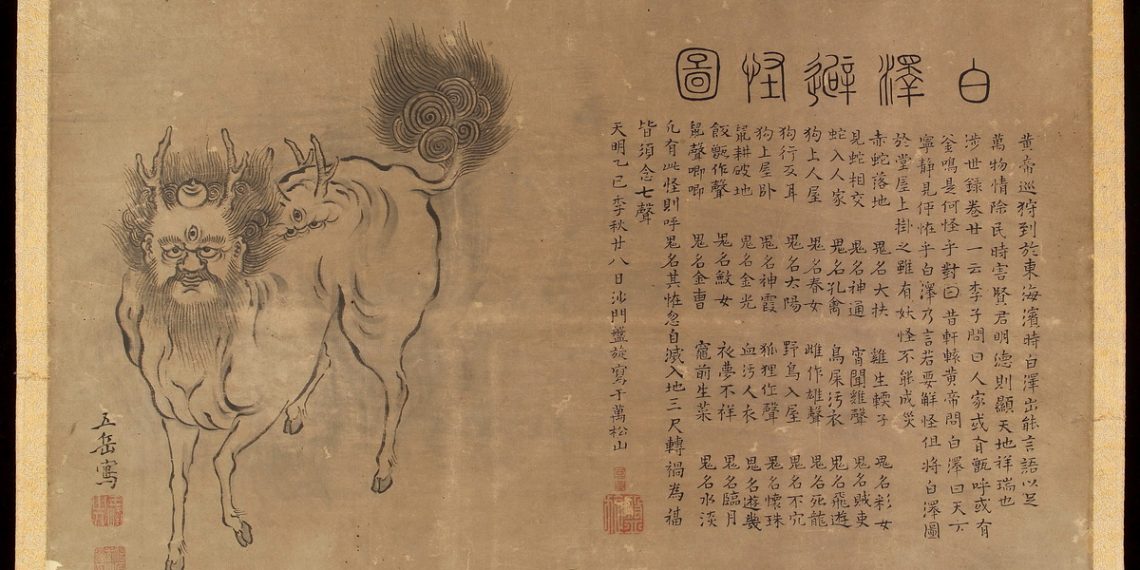 白澤避怪圖
黃帝巡狩到於東海濱時白澤出能言語以足
萬物情除民時害賢君明德則顯天地祥瑞也
涉世錄卷廿一云李子問曰人家或有甑呼或有
釜鳴是何怪乎對曰昔軒轅黃帝問白澤曰天下
寧靜見何恠乎白澤乃言若要解怪但將白澤圖
於堂屋上掛之雖有妖怪不能成災
赤蛇落地 鬼名大扶 雞生輭子 鬼名彩女
見蛇相交 鬼名神通 宵聞雞聲 鬼名賊東
蛇入人家 鬼名孔禽 鳥屎污衣 鬼名飛遊
狗上人屋 鬼名春女 雌作雄聲 鬼名死龍
狗行反耳 鬼名大陽 野鳥入屋 鬼名不宂
狗上屋卧 鬼名神霞 狐狸作聲 鬼名懷珠
鼠耕破地 鬼名金光 血污人衣 鬼名遊幾
飯甑作聲 鬼名鮫女 衣夢不祥 鬼名臨月
鼠聲唧唧 鬼名金曹 竈前生菜 鬼名水淡
凡有此怪則呼鬼名其恠忽自滅入地三尺轉禍為福
皆須念七聲
天明乙巳季秋廿八日沙門盤旋寫于萬松山
五岳寫